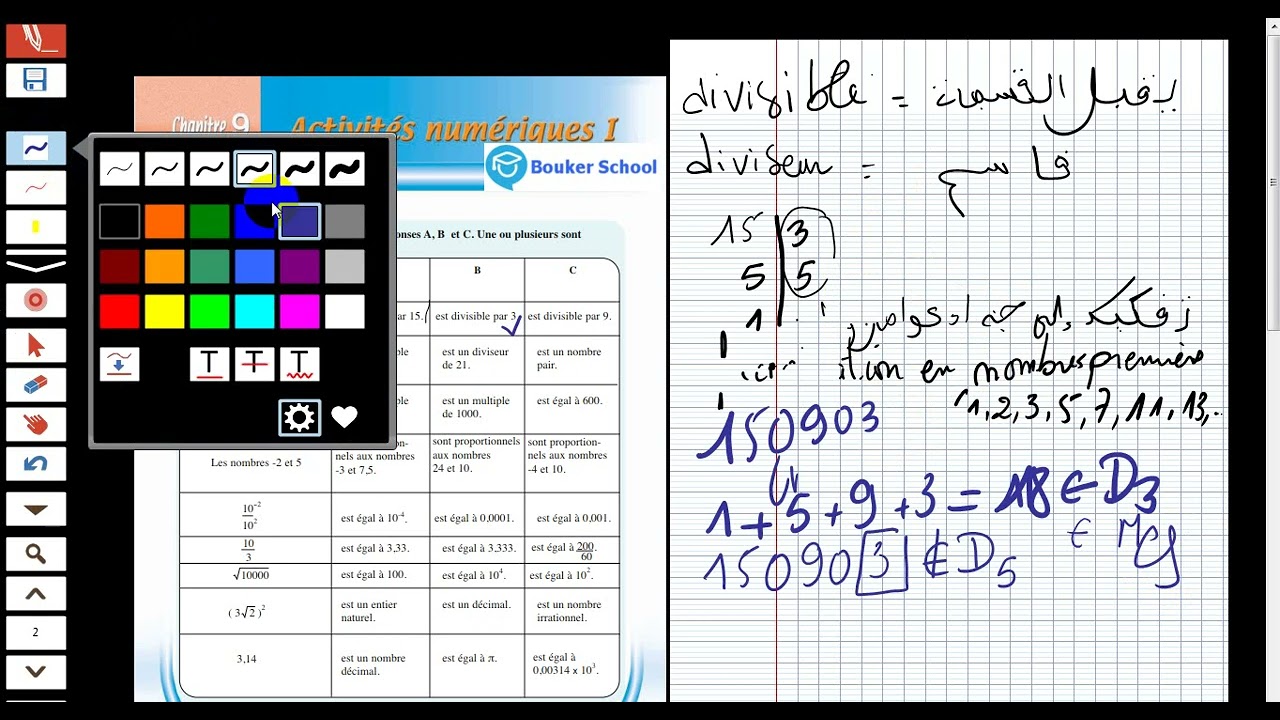 Chapitre 9
Activités numériques I
Bouker School
onses A, B et C. Une ou plusieurs sont
B C
ar 15. est divisible par 3 est divisible par 9.
ble est un diviseur de 21. est un nombre pair.
ble est un multiple de 1000. est égal à 600.
Les nombres -2 et 5 on- nels aux nombres -3 et 7,5. sont proportionnels aux nombres 24 et 10. sont proportion- nels aux nombres -4 et 10.
10⁻²/10² est égal à 10⁻⁴. est égal à 0,0001. est égal à 0,001.
10/3 est égal à 3,33. est égal à 3,333. est égal à 200/60.
√10000 est égal à 100. est égal à 10⁴. est égal à 10².
(3√2)² est un entier naturel. est un décimal. est un nombre irrationnel.
3,14 est un nombre décimal. est égal à π. est égal à 0,00314 x 10³.
divisible = يقبل القسمة
diviseur = قاسم
15 3
5 5
1
en nombres première
1, 2, 3, 5, 7, 11, 13, ..
150903
1+5+9+3 = 18 ∈ D3
150903 ∉ D5
T T T
2